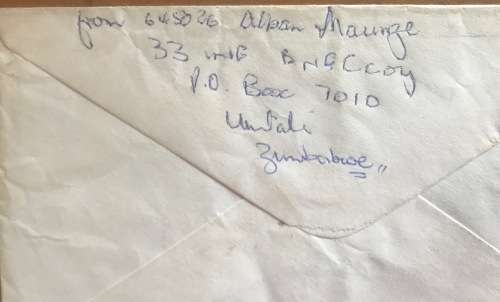 from 648026 Alban Maunze
33 inf B HQ C coy
P.O. Box 7010
Umtali
Zimbabwe